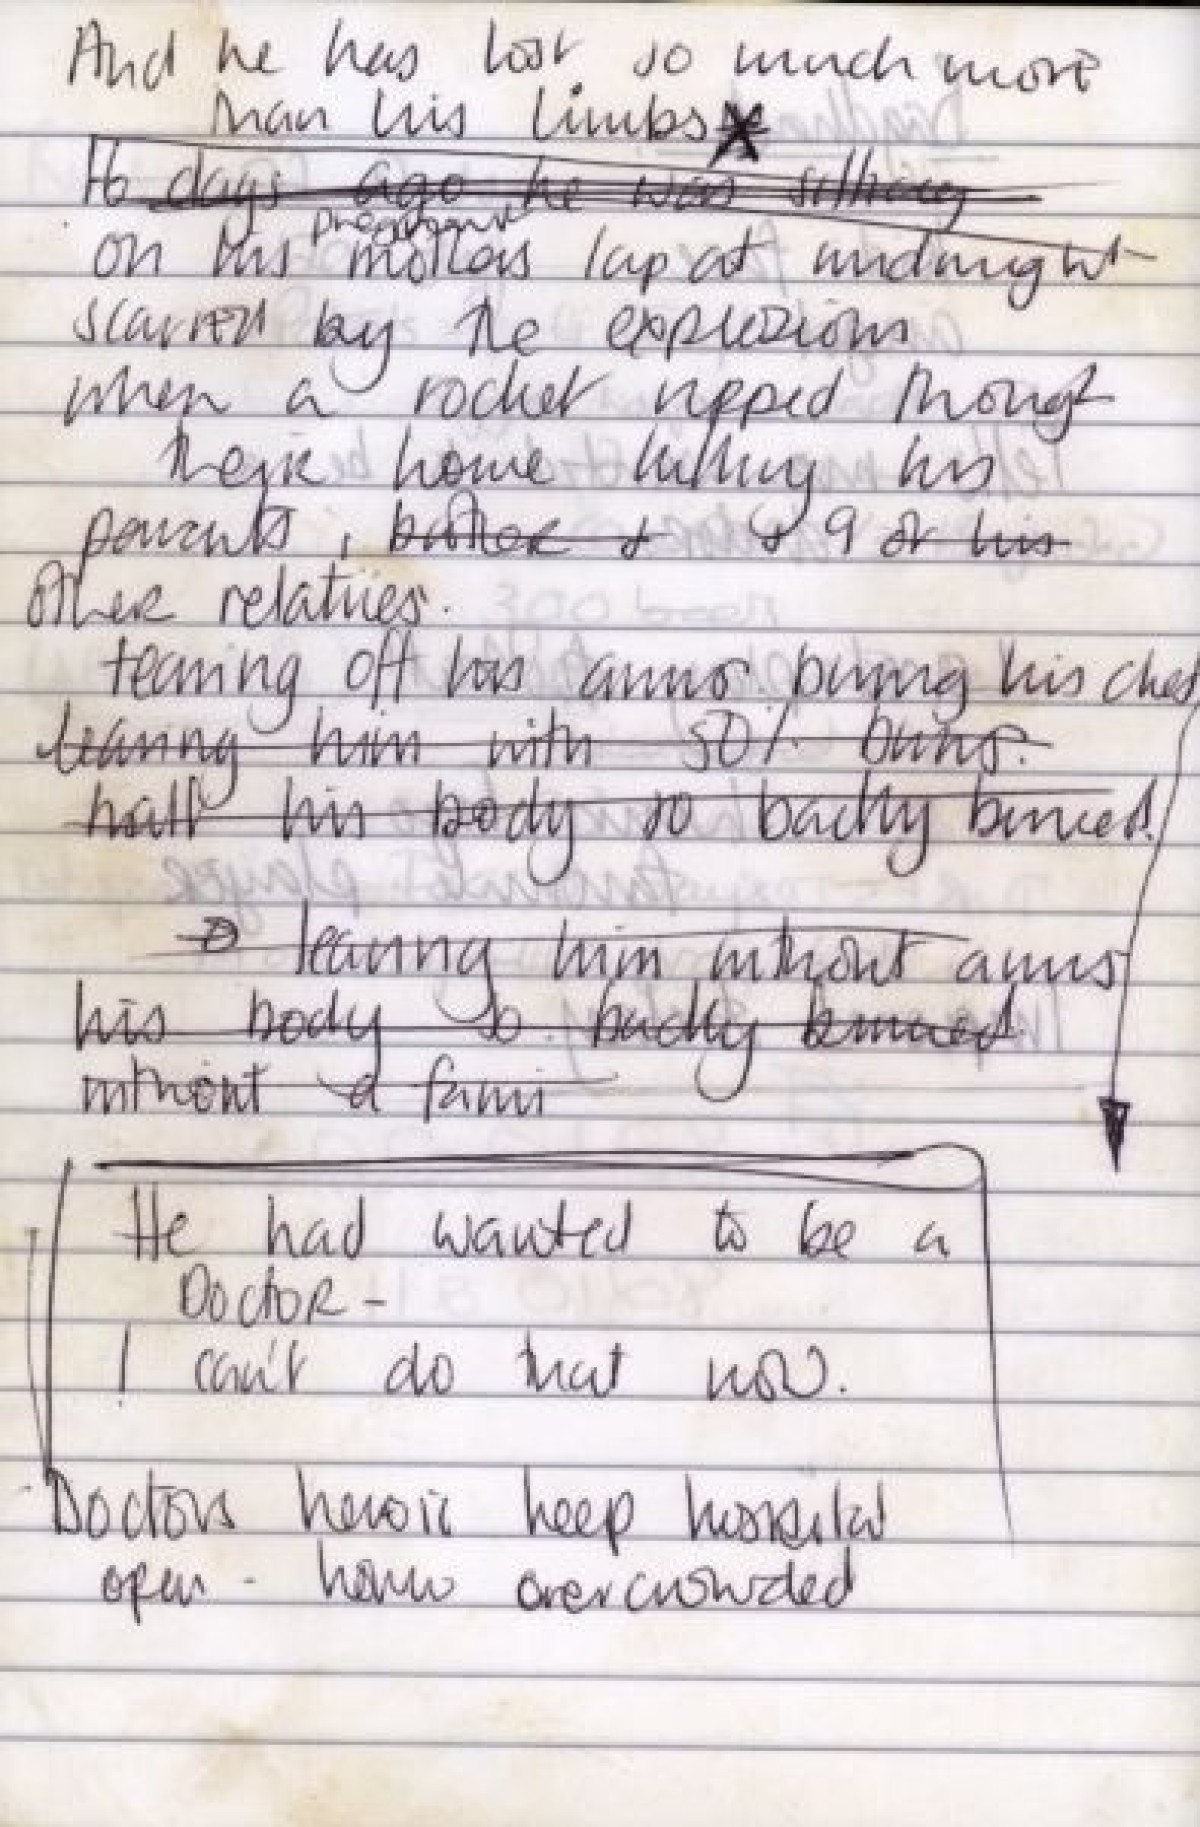 And he has lost so much more
than his limbs
days ago he was sitting
pregnant
on his mothers lap at midnight
scarred by the explosions
when a rocket ripped through
their home killing his
parents, brother & & 9 of his
other relatives.
tearing off his arms. burning his chest
leaving him with 50% burns.
half his body so badly burned.
leaving him without arms
his body so badly burned
without a fami
He had wanted to be a
Doctor -
I can't do that now.
Doctors heroic keep hospital
open - overcrowded